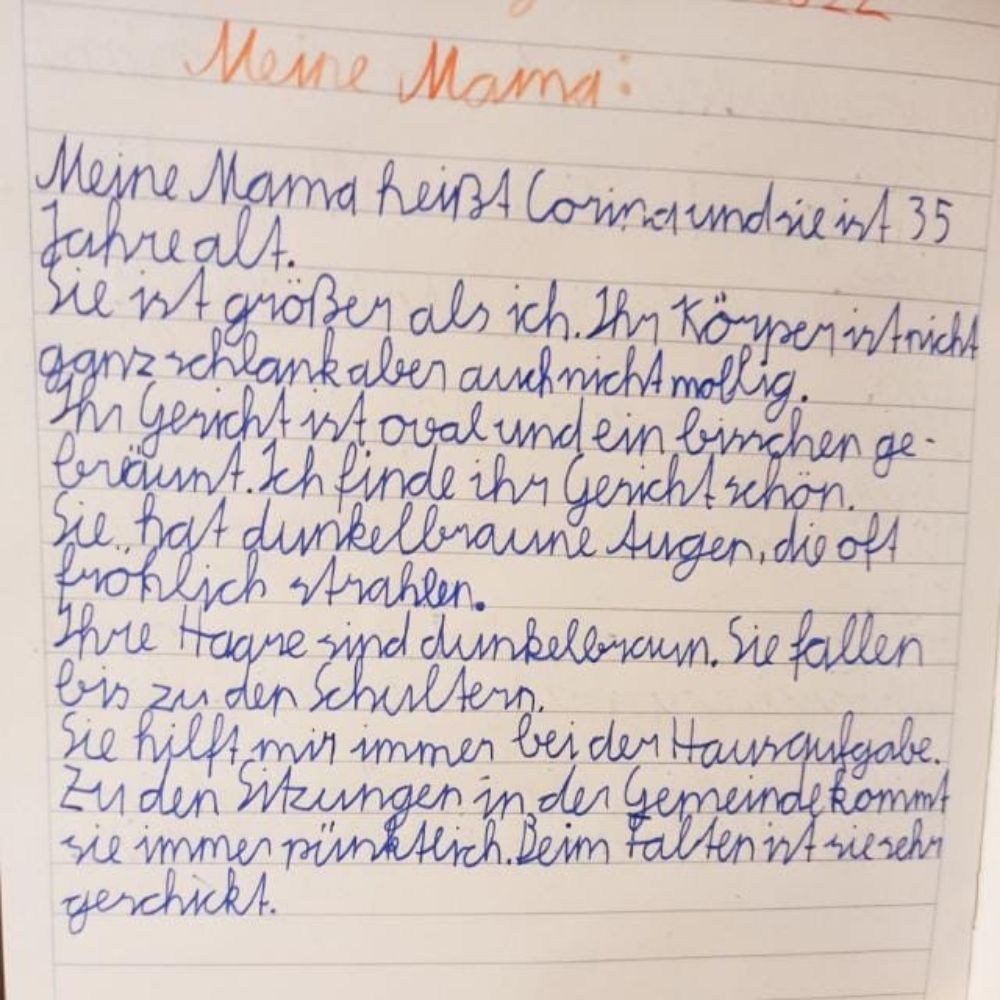 Meine Mama:
Meine Mama heißt Corina und sie ist 35
Jahre alt.
Sie ist größer als ich. Ihr Körper ist nicht
ganz schlank aber auch nicht mollig.
Ihr Gesicht ist oval und ein bisschen ge-
bräunt. Ich finde ihr Gesicht schön.
Sie hat dunkelbraune Augen, die oft
fröhlich strahlen.
Ihre Haare sind dunkelbraun. Sie fallen
bis zu den Schultern.
Sie hilft mir immer bei der Hausaufgabe.
Zu den Sitzungen in der Gemeinde kommt
sie immer pünktlich. Beim Falten ist sie sehr
geschickt.